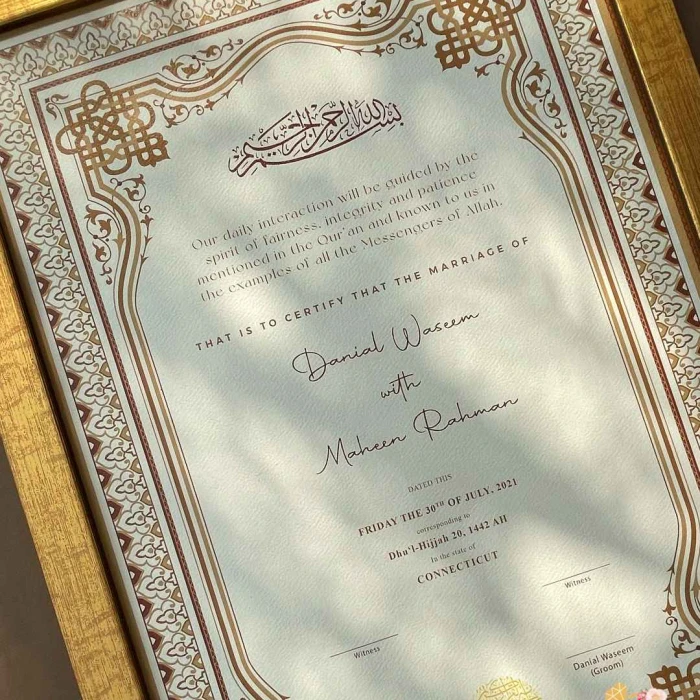 بسم الله الرحمن الرحيم
Our daily interaction will be guided by the
spirit of fairness, integrity and patience
mentioned in the Qur'an and known to us in
the examples of all the Messengers of Allah.
THAT IS TO CERTIFY THAT THE MARRIAGE OF
Danial Waseem
with
Maheen Rahman
DATED THIS
FRIDAY THE 30TH OF JULY, 2021
corresponding to
Dhu'l-Hijjah 20, 1442 AH
in the state of
CONNECTICUT
Witness
Witness
Danial Waseem
(Groom)